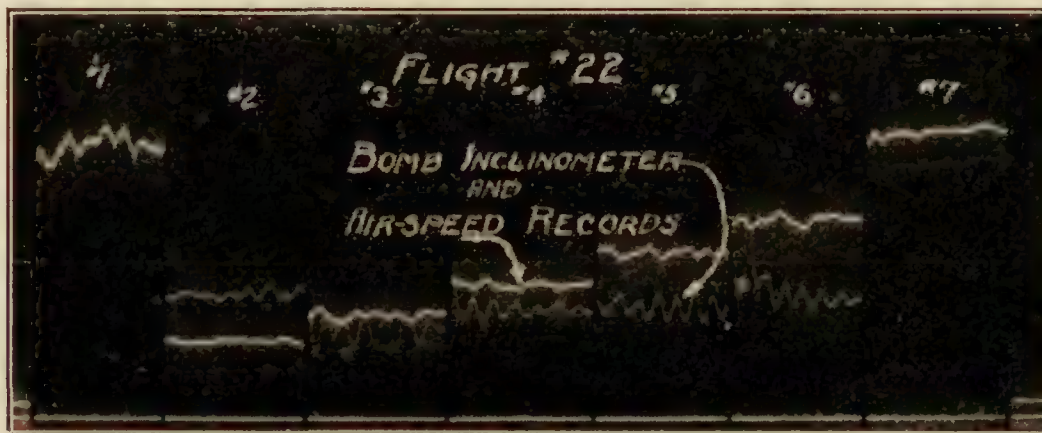 FLIGHT #22
#1 #2 #3 #4 #5 #6 #7
BOMB INCLINOMETER
AND
AIR-SPEED RECORDS